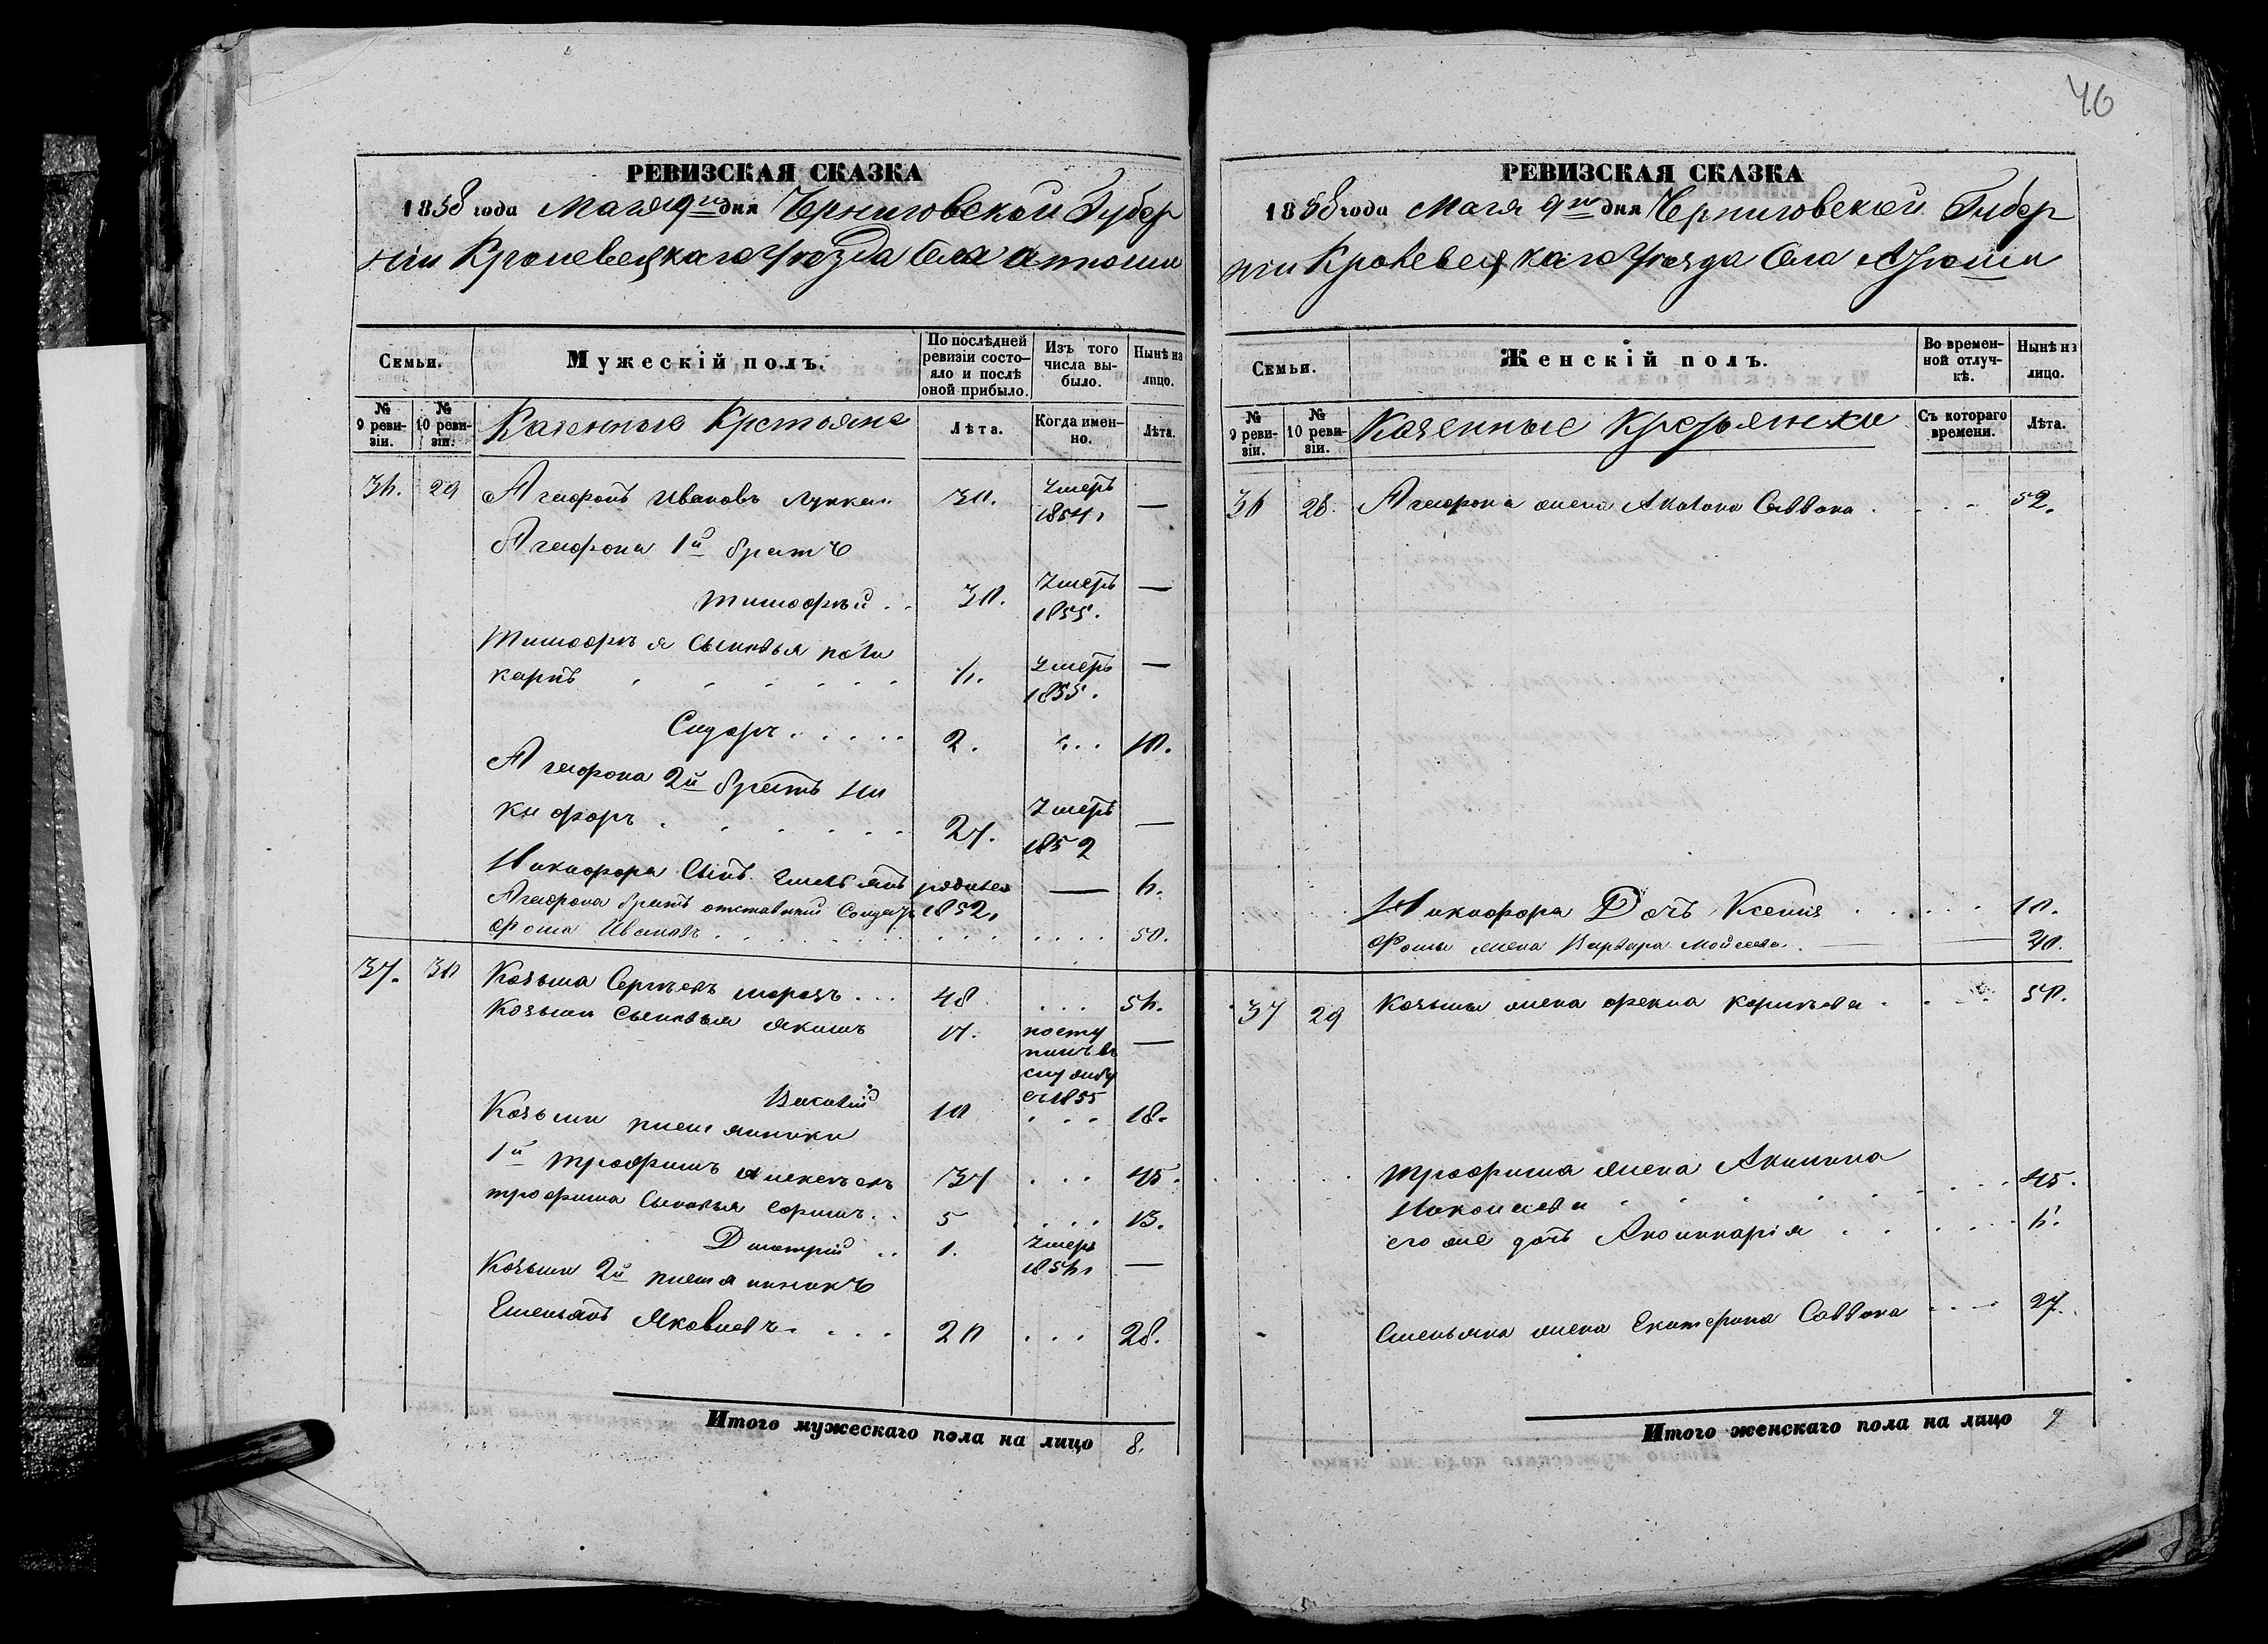 46
РЕВИЗСКАЯ СКАЗКА
1858 года Мая 9го дня Черниговской Губер
ніи Кролевецкаго Уѣзда Села Атюши
Семьи.
Мужескій полъ.
По послѣдней ревизіи состояло и послѣ оной прибыло.
Изъ того числа выбыло.
Нынѣ на лицо.
№ 9 ревизіи.
№ 10 ревизіи.
Казенные Крстьяне
Лѣта.
Когда именно.
Лѣта.
36. 29 Агафонъ Ивановъ 30. Умеръ 1854. —
Агафона 1й братъ
Тимофѣй . . 30. Умеръ 1855. —
Тимофѣя Сыновья поли
карпъ 6. Умеръ 1855. —
Сидоръ . . . . . 2. . . . 10.
Агафона 2й братъ Ни
кифоръ . . . . . . 27. Умеръ 1852 —
Никифора Сынъ Емельянъ родился 1852. — 6.
Агафона братъ отставный Солдатъ
Фома Ивановъ . . . . . . 50.
37. 30 Козьма Сергѣевъ морозъ . . . 48 . . . 56.
Козьмы Сыновья Якимъ 17. посту
пилъ въ
службу
съ 1855 —
Василій 10 . . . 18.
Козьмы племянники
1й Трофимъ Алексѣевъ 37 . . . 45.
трофима Сыновья Сормлъ . . 5 . . . . 13.
Дмитрій . . 1. Умеръ 1856. —
Козьмы 2й племянникъ
Емельянъ Яковлевъ . . . . 20 . . . 28.
Итого мужескаго пола на лицо 8.
РЕВИЗСКАЯ СКАЗКА
1858 года Мая 9го дня Черниговской Губер
ніи Кролевецкаго Уѣзда Села Атюши
Семьи.
Женскій полъ.
Во временной отлучкѣ.
Нынѣ на лицо.
№ 9 ревизіи.
№ 10 ревизіи.
Казенные Крестьянки
Съ котораго времени.
Лѣта.
36 28. Агафона жена Акилина Саввина . . . . 52.
Никифора Дочь Ксенія . . . . . 10.
Фомы жена Варвара Мойсеева . — 40.
37 29 Козьмы жена Фекла Корнѣева . . . . 50.
Трофима жена Акилина
Николаева . . . . 45.
его же дочь Аполинарія . . . . . 6.
Емельяна жена Екатерина Саввина . . . . 27.
Итого женскаго пола на лицо 7